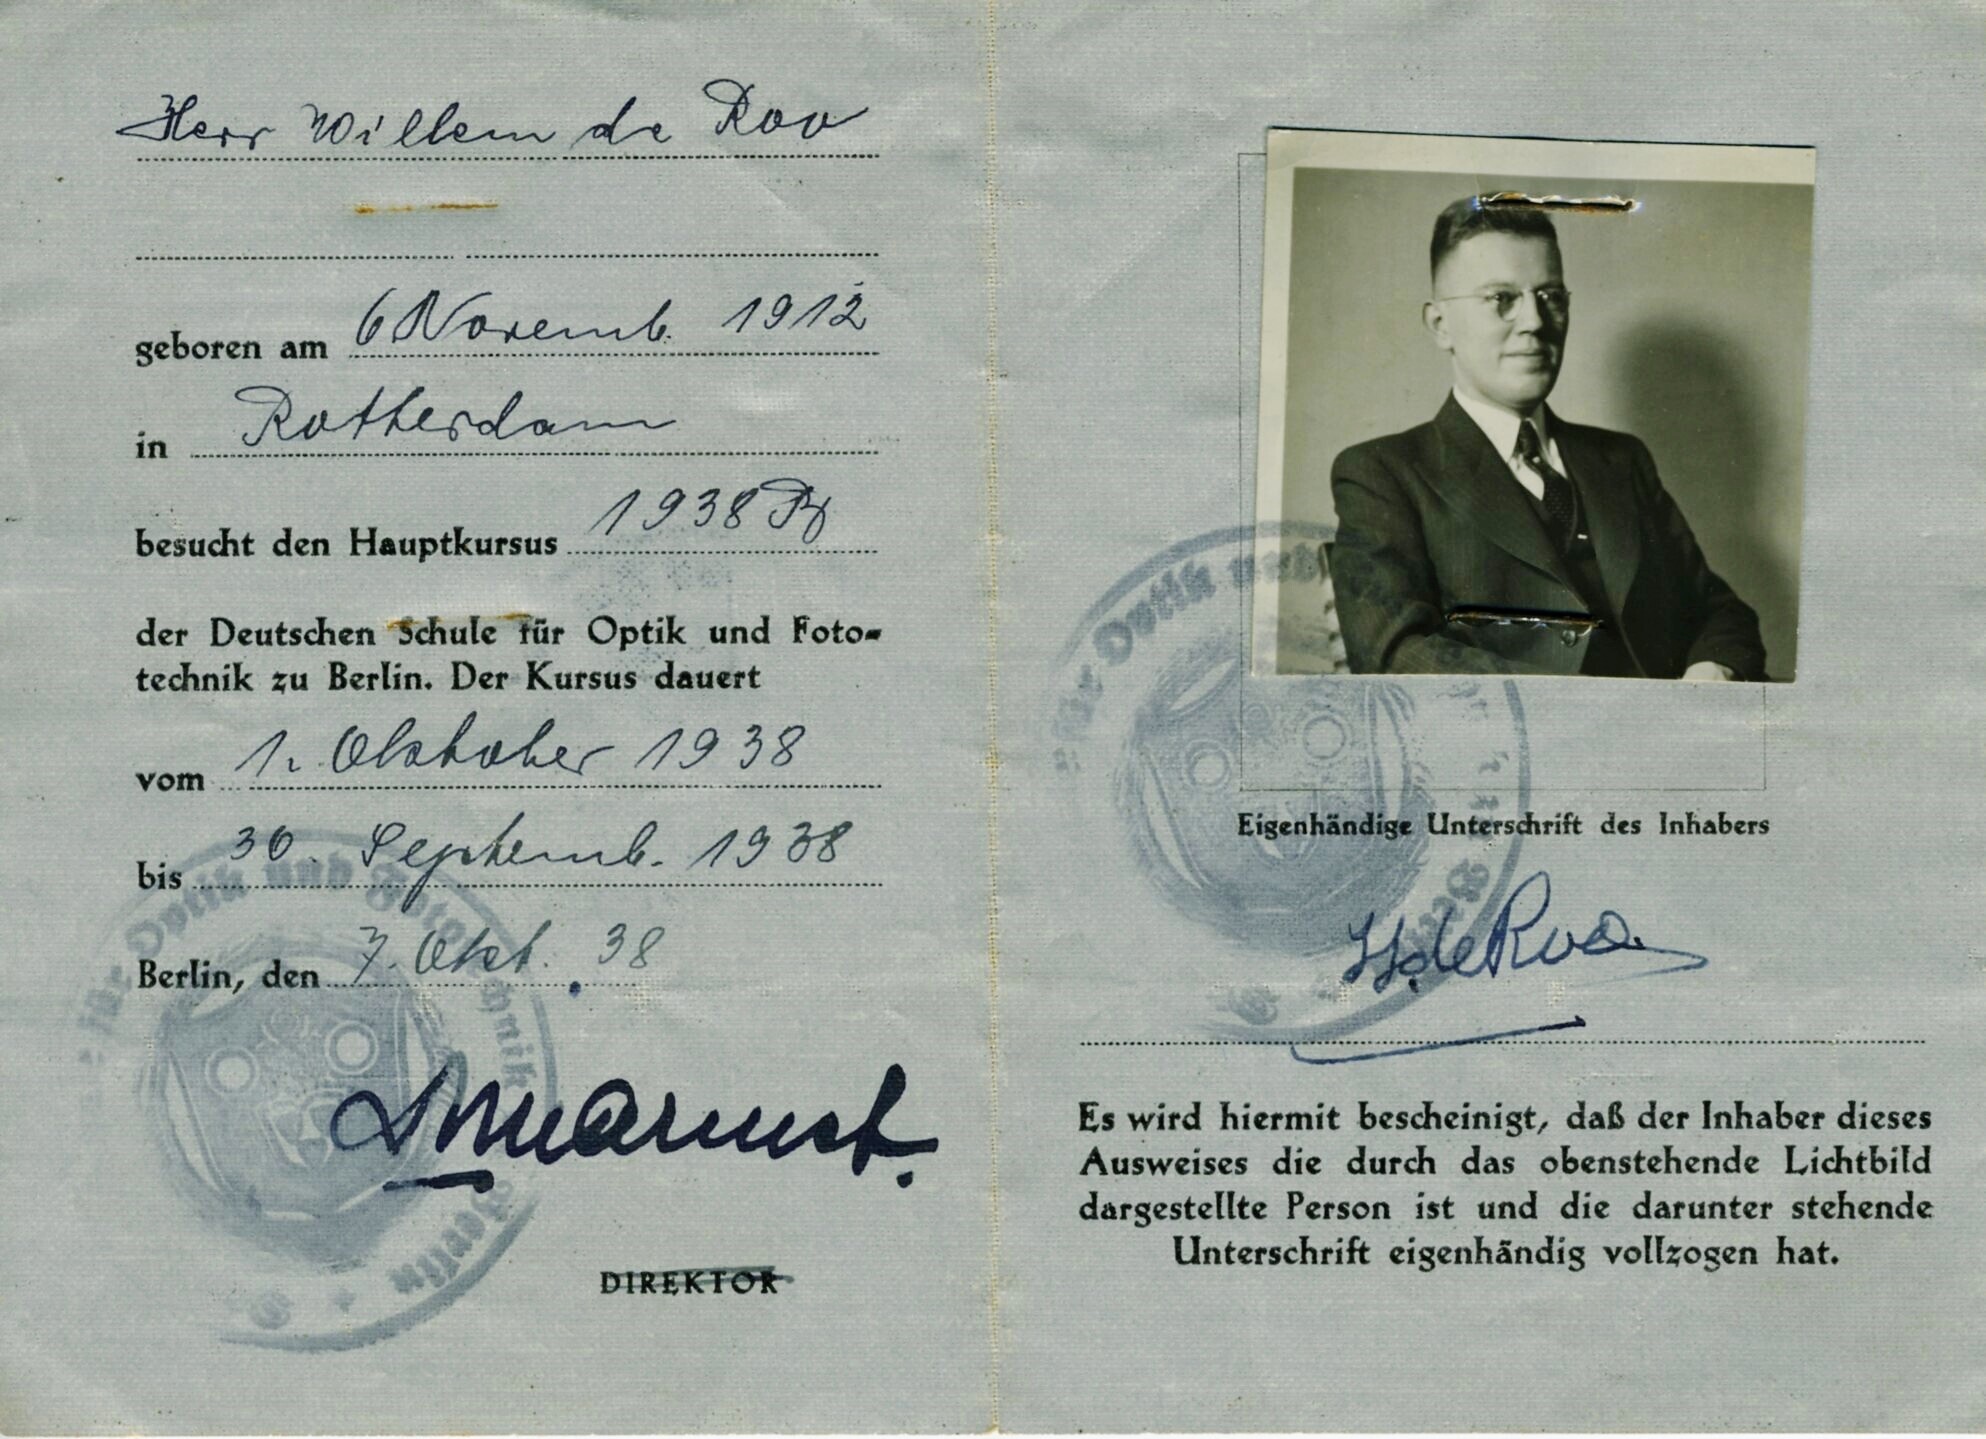 Herr Willem de Roo
geboren am 6 Novemb. 1912
in Rotterdam
besucht den Hauptkursus 1938
der Deutschen Schule für Optik und Foto-
technik zu Berlin. Der Kursus dauert
vom 1. Oktober 1938
bis 30. Septemb. 1938
Berlin, den 7. Okt. 38
DIREKTOR
für Optik und Fototechnik Berlin
für Optik und
Eigenhändige Unterschrift des Inhabers
W. de Roo
Es wird hiermit bescheinigt, daß der Inhaber dieses
Ausweises die durch das obenstehende Lichtbild
dargestellte Person ist und die darunter stehende
Unterschrift eigenhändig vollzogen hat.